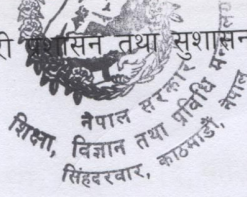 री प्रशासन तथा सुशासन
नेपाल सरकार
शिक्षा, विज्ञान तथा प्रविधि
सिंहदरवार, काठमाडौं, नेपाल